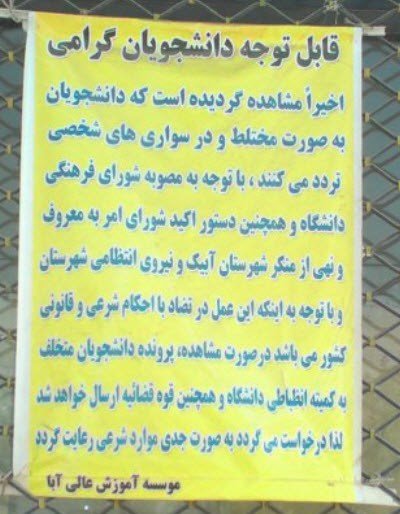 قابل توجه دانشجویان گرامی
اخیراً مشاهده گردیده است که دانشجویان
به صورت مختلط و در سواری های شخصی
تردد می کنند ، با توجه به مصوبه شورای فرهنگی
دانشگاه و همچنین دستور اکید شورای امر به معروف
و نهی از منکر شهرستان آبیک و نیروی انتظامی شهرستان
و با توجه به اینکه این عمل در تضاد با احکام شرعی و قانونی
کشور می باشد درصورت مشاهده، پرونده دانشجویان متخلف
به کمیته انظباطی دانشگاه و همچنین قوه قضائیه ارسال خواهد شد
لذا درخواست می گردد به صورت جدی موارد شرعی رعایت گردد
موسسه آموزش عالی آبا